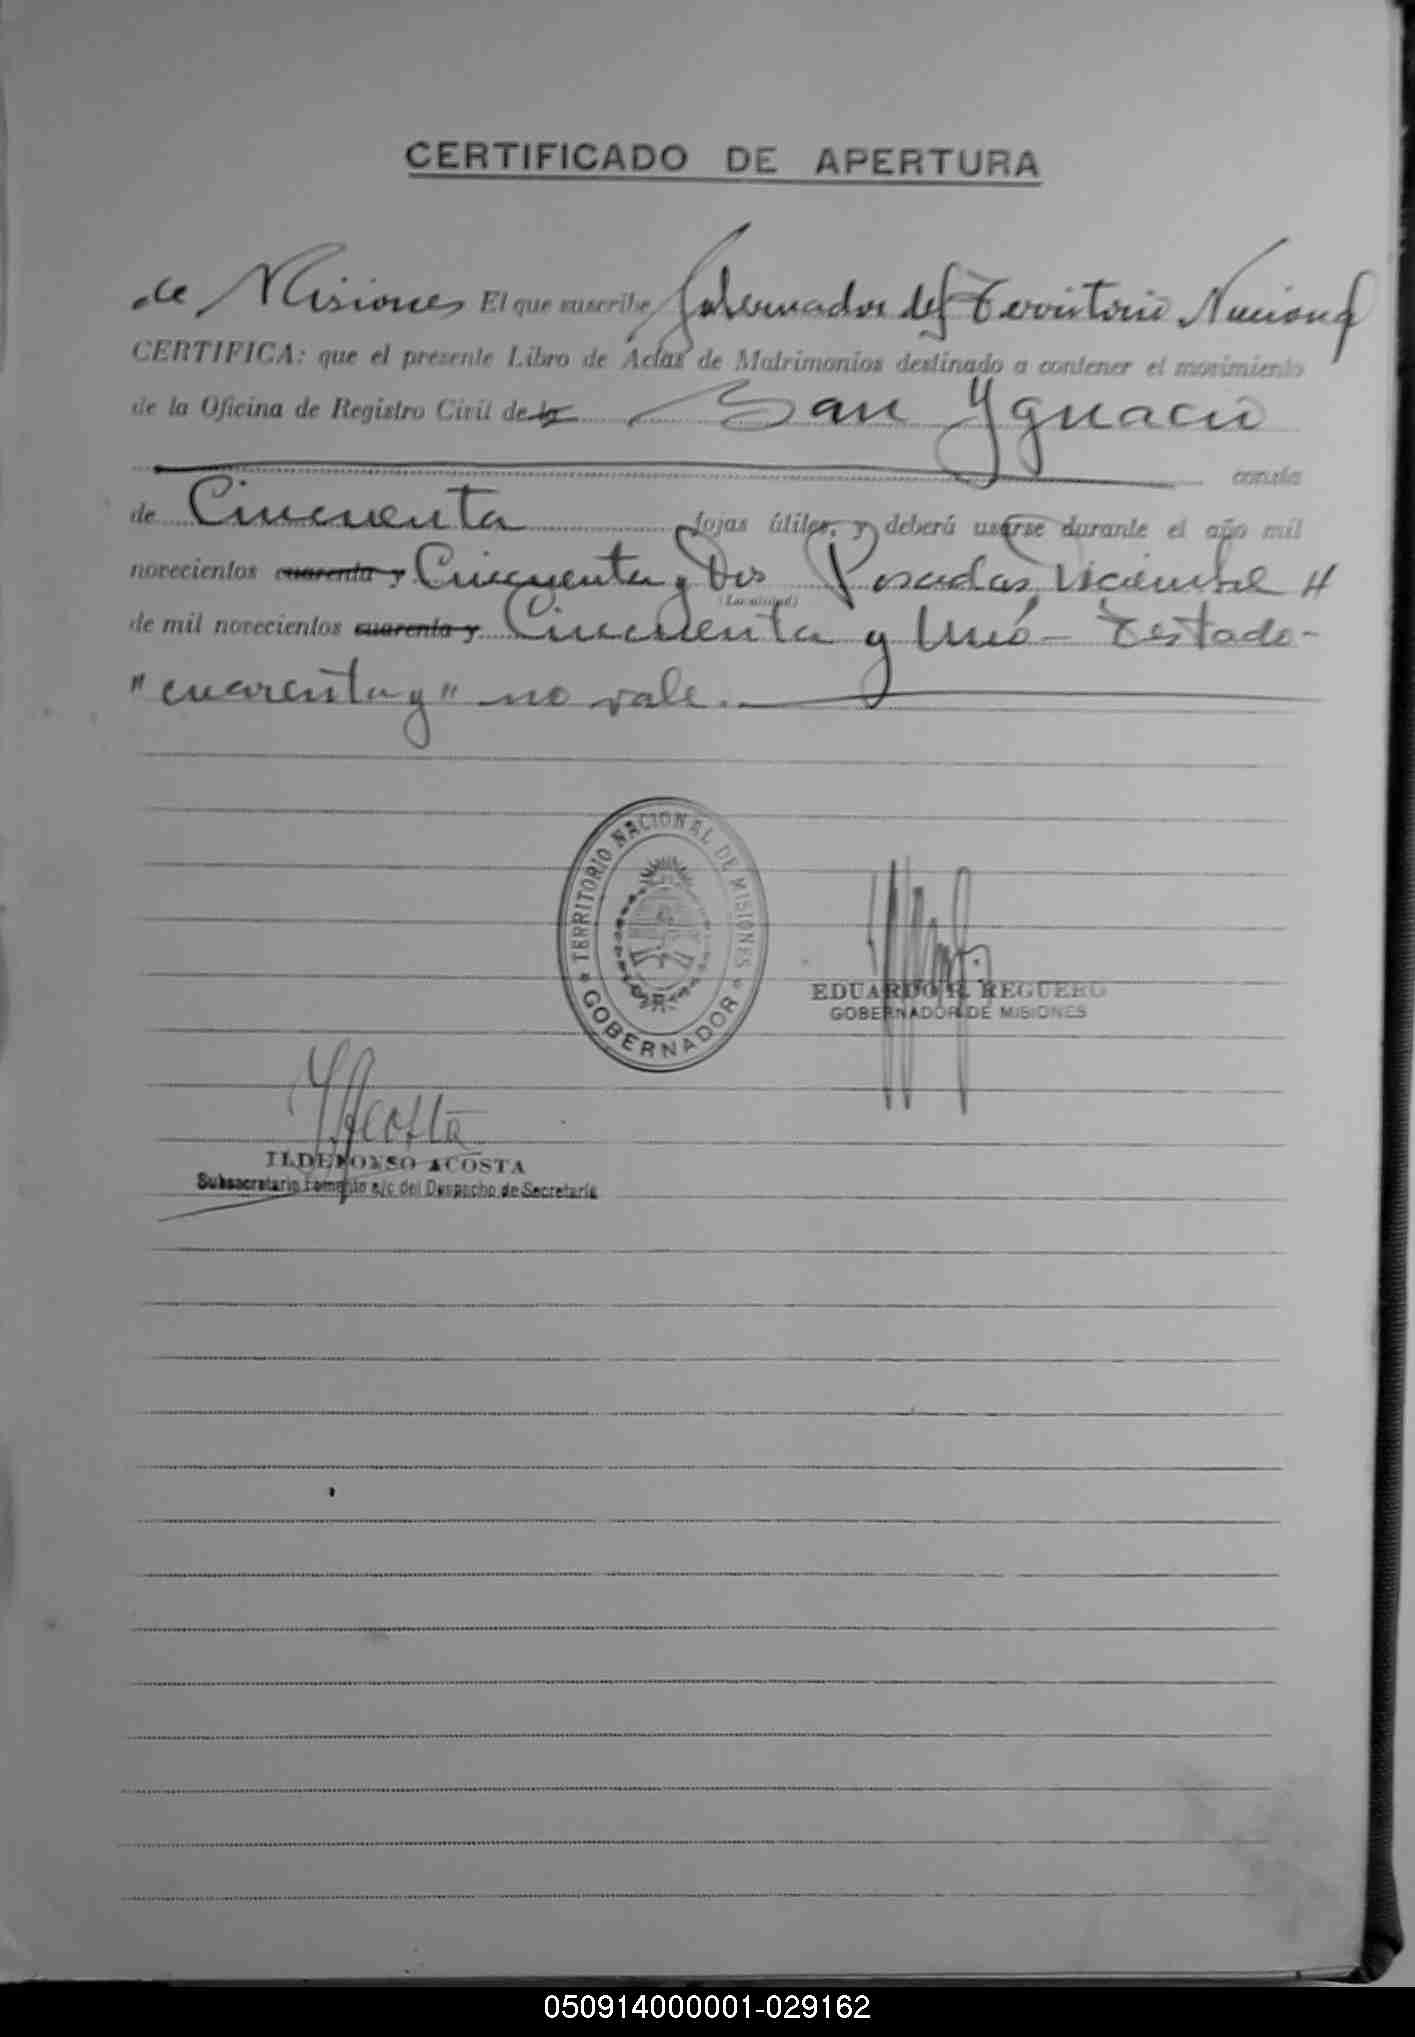 CERTIFICADO DE APERTURA
de Misiones El que suscribe, Gobernador del Territorio Nacional
CERTIFICA: que el presente Libro de Actas de Matrimonios destinado a contener el movimiento
de la Oficina de Registro Civil de la San Ygnacio
consta
de Cincuenta fojas útiles, y deberá usarse durante el año mil
novecientos cuarenta y Cincuenta y Dos Posadas, Diciembre
(Localidad)
de mil novecientos cuarenta y Cincuenta y Uno - Testado -
"cuarenta y" no vale.
TERRITORIO NACIONAL DE MISIONES
GOBERNADOR
EDUARDO R. REGUERO
GOBERNADOR DE MISIONES
Y Acosta
ILDEFONSO ACOSTA
Subsecretario Fomento a/c del Despacho de Secretaría
050914000001-029162